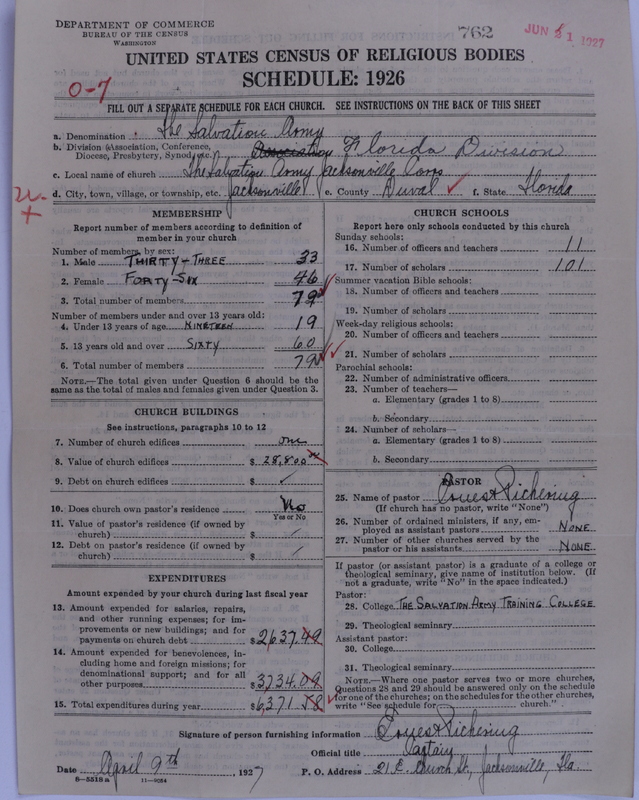 DEPARTMENT OF COMMERCE
BUREAU OF THE CENSUS
WASHINGTON
762
JUN 1 1927
UNITED STATES CENSUS OF RELIGIOUS BODIES
SCHEDULE: 1926
0-7
FILL OUT A SEPARATE SCHEDULE FOR EACH CHURCH. SEE INSTRUCTIONS ON THE BACK OF THIS SHEET
a. Denomination The Salvation Army
b. Division (Association, Conference, Diocese, Presbytery, Synod, etc. Florida Division
c. Local name of church The Salvation Army Jacksonville Corps
d. City, town, village, or township, etc. Jacksonville e. County Duval f. State Florida
MEMBERSHIP
Report number of members according to definition of
member in your church
Number of members by sex:
1. Male THIRTY-THREE 33
2. Female FORTY-SIX 46
3. Total number of members 79
Number of members under and over 13 years old:
4. Under 13 years of age NINETEEN 19
5. 13 years old and over SIXTY 60
6. Total number of members 79
NOTE.—The total given under Question 6 should be the
same as the total of males and females given under Question 3.
CHURCH BUILDINGS
See instructions, paragraphs 10 to 12
7. Number of church edifices one
8. Value of church edifices $ 28,800
9. Debt on church edifices $
10. Does church own pastor's residence No
Yes or No
11. Value of pastor's residence (if owned by
church) $
12. Debt on pastor's residence (if owned by
church) $
EXPENDITURES
Amount expended by your church during last fiscal year
13. Amount expended for salaries, repairs,
and other running expenses; for im-
provements or new buildings; and for
payments on church debt $ 2637.49
14. Amount expended for benevolences, in-
cluding home and foreign missions; for
denominational support; and for all
other purposes $ 3734.09
15. Total expenditures during year $ 6,371.58
CHURCH SCHOOLS
Report here only schools conducted by this church
Sunday schools:
16. Number of officers and teachers 11
17. Number of scholars 101
Summer vacation Bible schools:
18. Number of officers and teachers
19. Number of scholars
Week-day religious schools:
20. Number of officers and teachers
21. Number of scholars
Parochial schools:
22. Number of administrative officers
23. Number of teachers—
a. Elementary (grades 1 to 8)
b. Secondary
24. Number of scholars—
a. Elementary (grades 1 to 8)
b. Secondary
PASTOR
25. Name of pastor Ernest Pickering
(If church has no pastor, write "None")
26. Number of ordained ministers, if any, em-
ployed as assistant pastors NONE
27. Number of other churches served by the
pastor or his assistants NONE
If pastor (or assistant pastor) is a graduate of a college or
theological seminary, give name of institution below. (If
not a graduate, write "No" in the space indicated.)
Pastor:
28. College THE SALVATION ARMY TRAINING COLLEGE
29. Theological seminary
Assistant pastor:
30. College
31. Theological seminary
NOTE.—Where one pastor serves two or more churches,
Questions 28 and 29 should be answered only on the schedule
for one of the churches; on the schedules for the other churches,
write "See schedule for church."
Signature of person furnishing information Ernest Pickering
Official title Captain
Date April 9th, 1927 P. O. Address 21 E. Church St., Jacksonville, Fla.
8—5518a 11—9024